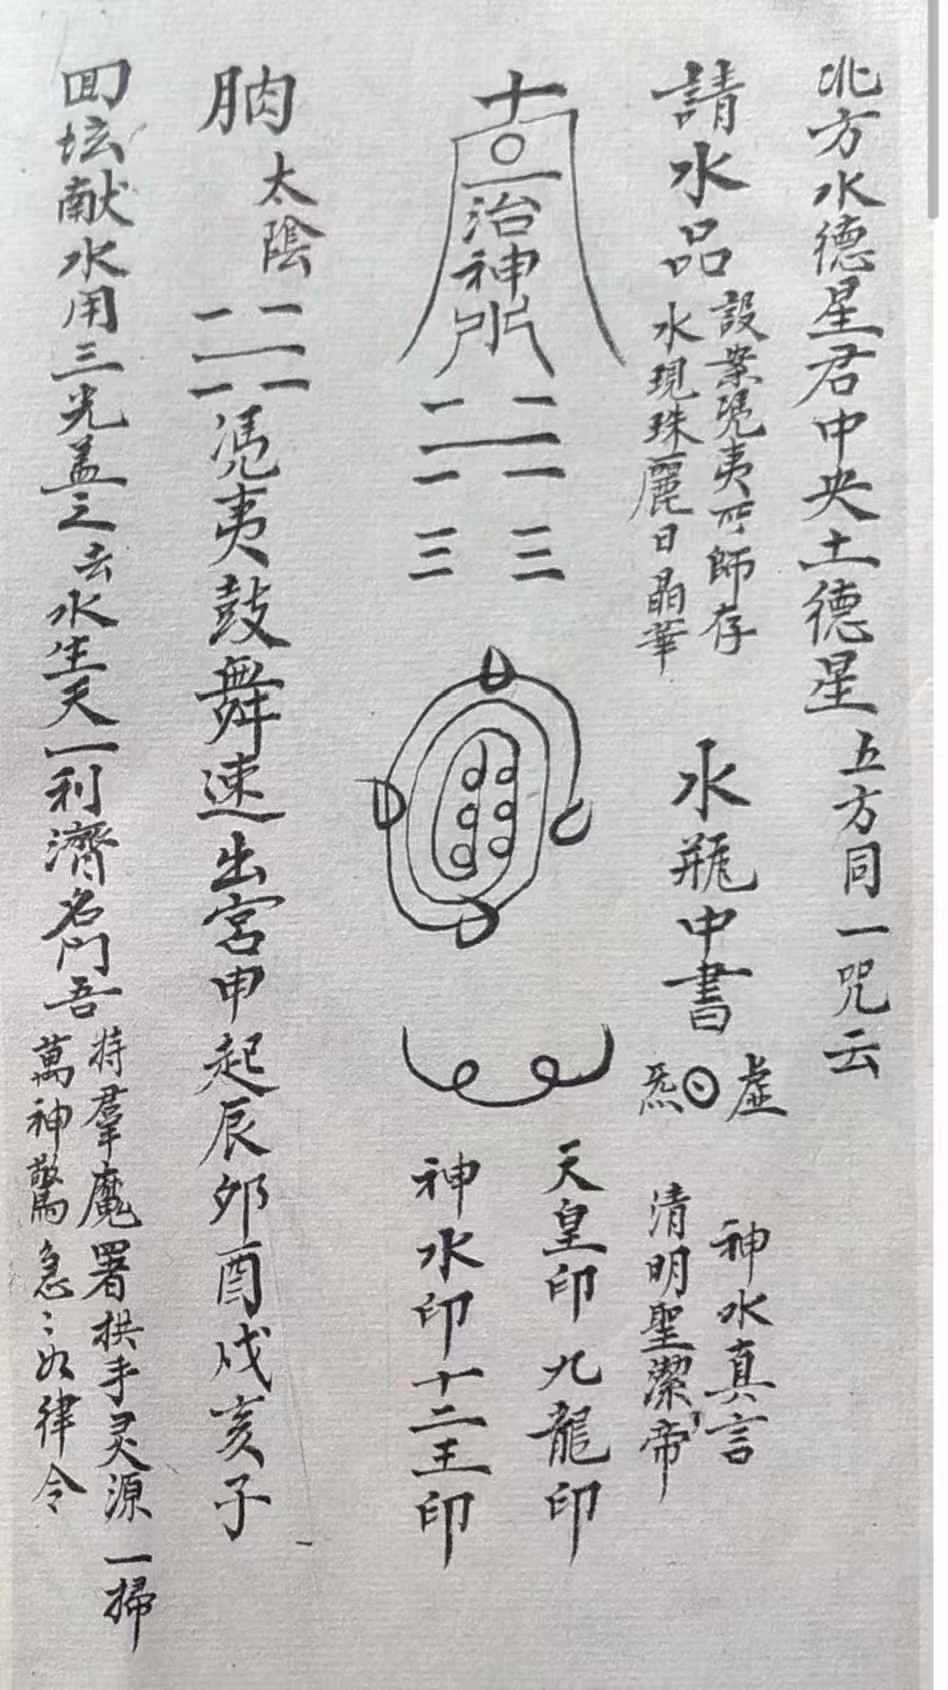 北方水德星君中央土德星五方同一咒云
請水品
設案馮夷所師存
水現珠麗日晶華
水瓶中書
虛
炁
神水真言
清明聖潔帝
治神水
天皇印九龍印
神水印十二王印
太陰
馮夷鼓舞速出宮申起辰夘酉戌亥子
回坛献水用三光盖之去水生天一利濟名門吾
持羣魔署拱手灵源一掃
萬神驚急〻如律令